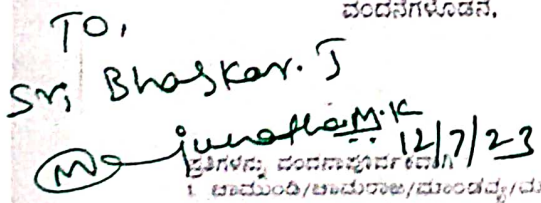 ವಂದನೆಗಳೊಡನೆ,
TO,
Sri Bhaskar. J
Manjunatha M.K 12/7/23
ಪ್ರತಿಗಳನ್ನು ವಂದನಾಪೂರ್ವಕವಾಗಿ
1 ಚಾಮುಂಡಿ/ಚಾಮರಾಜ/ಮಾಂಡವ್ಯ/